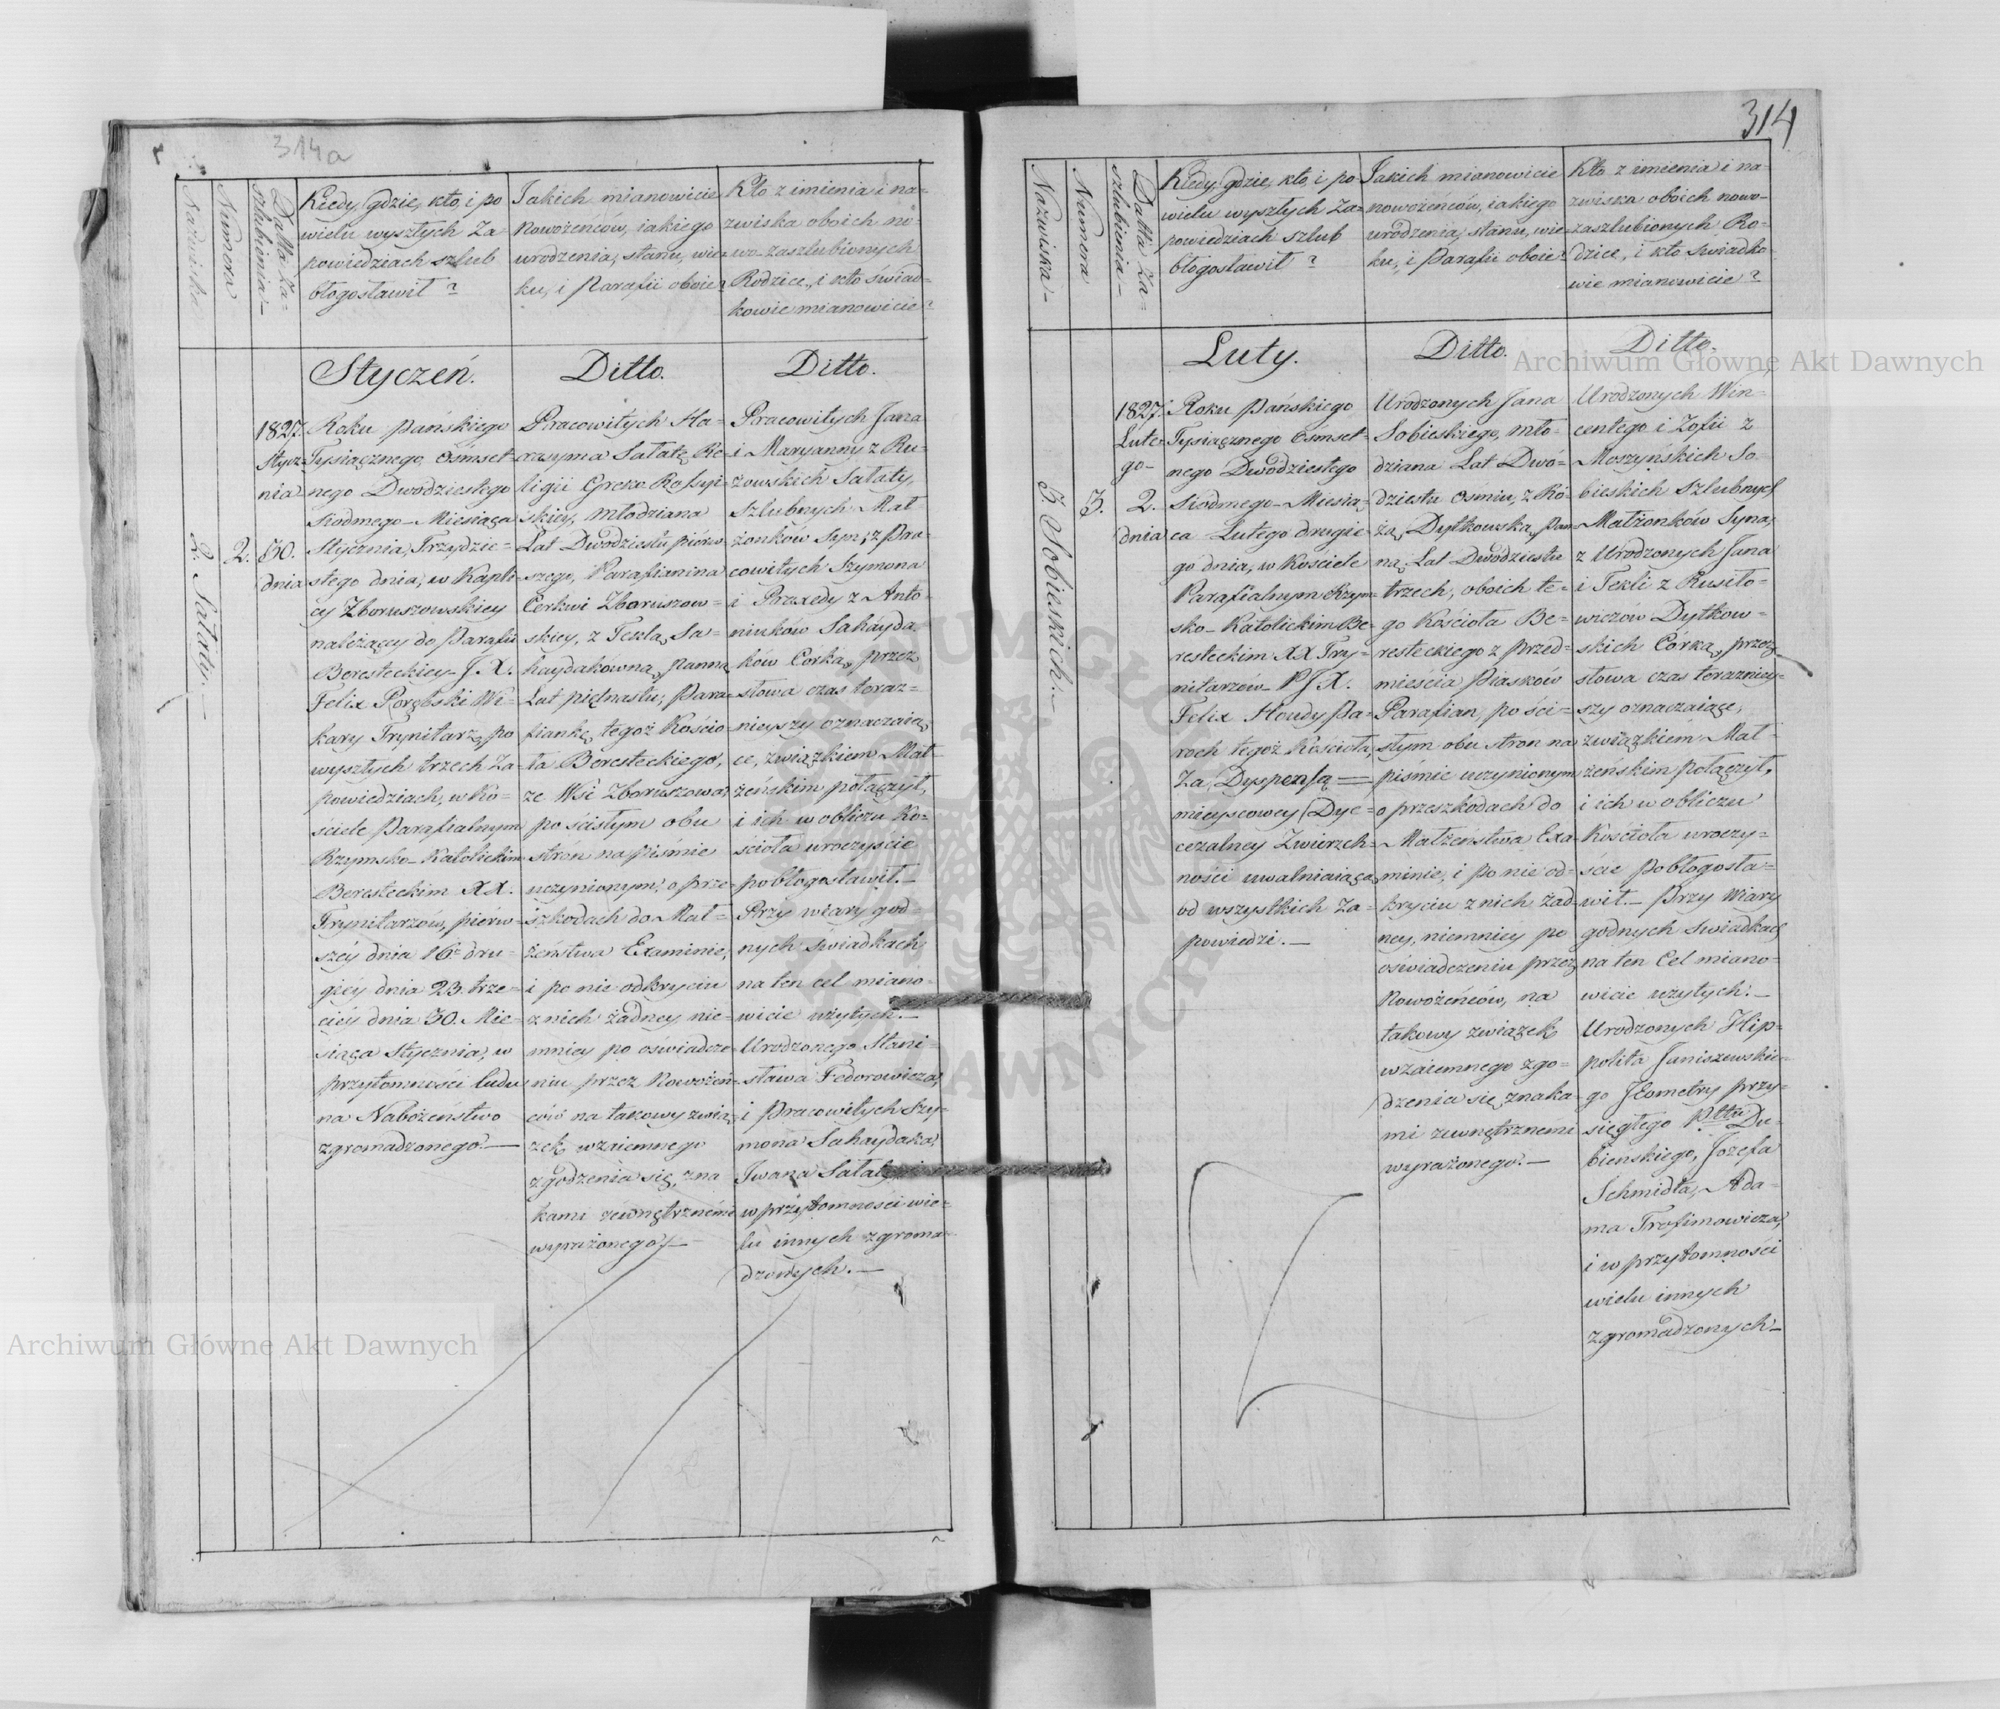 314a
Nazwiska
Numera
Datta Za-
szlubienia_
Kiedy, gdzie, kto, i po
wielu wyszłych Za-
powiedziach szlub
błogosławił?
Jakich mianowicie
Nowożeńców, iakiego
urodzenia, stanu, wie-
ku, i Parafii oboie?
Kto z imienia i na-
zwiska oboich no-
wo-zaszlubionych
Rodzice, i kto świad-
kowie mianowicie?
Styczeń.
Ditto.
Ditto.
2. Sałaty._
2.
1827.
Stycz-
nia
30.
dnia
Roku Pańskiego
Tysiącznego Ośmset-
nego Dwudziestego
Siodmego_ Miesiąca
Stycznia, Trzydzie-
stego dnia, w Kapli-
cy Zboruszowskiey
należącey do Parafii
Beresteckiey_ J. X.
Felix Porębski Wi-
kary Trynitarz, po
wyszłych trzech Za-
powiedziach, w Ko-
ściele Parafialnym
Rzymsko_ Katolickim
Beresteckim XX.
Trynitarzów, pierw-
szey dnia 16. dru-
giey dnia 23. trze-
ciey dnia 30. Mie-
siąca Stycznia, w
przytomności ludu
na Nabożeństwo
zgromadzonego._
Pracowitych Ha-
rasyma Sałatę Re-
ligii Greko Rossyi-
skiey, Młodziana
Lat Dwudziestu pierw-
szego, Parafianina
Cerkwi Zboruszow-
skiey, z Teklą Sa-
haydakówną, Panną
Lat piętnastu, Para-
fianką tegoż Kościo-
ła Beresteckiego,
ze Wsi Zboruszowa,
po ścisłym obu
strón na piśmie
uczynionym, o prze-
szkodach do Mał-
żeństwa Examinie,
i po nie odkryciu
z nich żadney nie-
mniey po oświadcze-
niu przez Nowożeń-
ców na takowy zwią-
zek wzaiemnego
zgodzenia się, zna
kami zewnętrznemi
wyrażonego._
Pracowitych Jana
i Maryanny z Ru-
żowskich Sałaty,
Szlubnych Mał-
żonków Syn, z Pra-
cowitych Szymona
i Praxedy z Anto-
niuków Sahayda-
ków Corką, przez
słowa czas teraz-
nieyszy oznaczaią-
ce, związkiem Mał-
żeńskim połączył,
i ich w obliczu Ko-
ścioła uroczyście
pobłogosławił._
Przy wiary god-
nych świadkach
na ten cel miano-
wicie użytych._
Urodzonego Stani-
sława Fedorowicza,
i Pracowitych Szy-
mona Sahaydaka,
Iwana Sałaty
w przytomności wie-
lu innych zgroma-
dzonych._
314
Nazwiska_
Numera
Datta Za-
szlubienia_
Kiedy, gdzie, kto, i po
wielu wyszłych Za-
powiedziach szlub
błogosławił?
Jakich mianowicie
nowożeńców, iakiego
urodzenia, stanu, wie-
ku, i Parafii oboie?
Kto z imienia i na-
zwiska oboich nowo-
zaszlubionych Ro-
dzice, i kto świadko-
wie mianowicie?
Luty.
Ditto.
Ditto.
3. Sobieskich._
3.
1827.
Lute-
go_
2.
dnia
Roku Pańskiego
Tysiącznego Ośmset-
nego Dwudziestego
Siodmego_ Miesią-
ca Lutego drugie-
go dnia, w Kościele
Parafialnym Rzym-
sko_ Katolickim Be-
resteckim XX Try-
nitarzów_ P J X.
Felix Houdy Pa-
roch tegoż Kościoła,
Za Dyspensą =
mieyscowey Dye-
cezalney Zwierzch-
ności uwalniaiącą
od wszystkich Za-
powiedzi._
Urodzonych Jana
Sobieskiego, Mło-
dziana Lat Dwó-
dziestu ośmiu, z Ró-
żą Dytkowską, Pan-
ną Lat Dwudziestu
trzech, oboich te-
go Kościoła Be-
resteckiego z Przed-
mieścia Piasków
Parafian, po ści-
słym obu stron na
piśmie uczynionym
o przeszkodach do
Małżeństwa Exa-
minie, i po nie od-
kryciu z nich żad-
ney, niemniey po
oświadczeniu przez
Nowożeńców, na
takowy związek
wzaiemnego zgo-
dzenia się, znaka-
mi zewnętrznemi
wyrażonego._
Urodzonych Win-
centego i Zofii z
Morzyńskich So-
bieskich Szlubnych
Małżonków Syna,
z Urodzonych Jana
i Tekli z Rusiło-
wiczów Dytkow-
skich Córką, przez
słowa czas teraźniey-
szy oznaczaiące,
związkiem Mał-
żeńskim połączył,
i ich w obliczu
Kościoła uroczy-
ście pobłogosła-
wił._ Przy Wiary
godnych świadkach
na ten Cel miano-
wicie użytych._
Urodzonych Hip-
polita Juniszewskie-
go JEometry przy-
sięgłego Pttu Du-
bienskiego, Jozefa
Schmidta, Ada-
ma Trofimowicza,
i w przytomności
wielu innych
zgromadzonych_
Archiwum Główne Akt Dawnych
Archiwum Główne Akt Dawnych